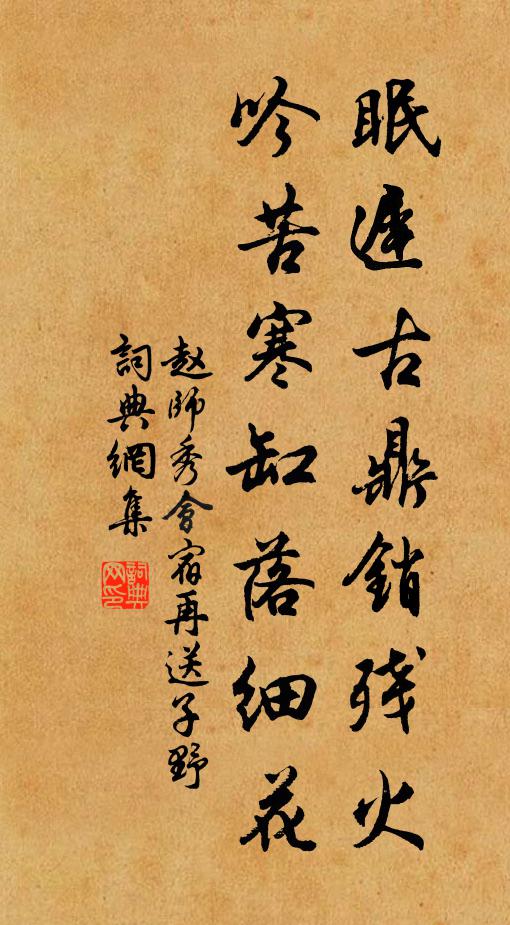 眠遲古鼎銷殘火
吟苦寒缸落細花
赵師秀會宿再送子野
詞典網集
詞典網印